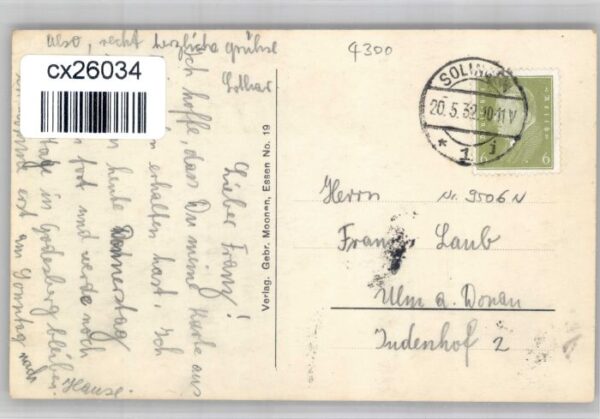 also, recht herzliche Grüße
Lothar
cx26034
4300
SOLINGEN
20.5.32.10-11V
* 1 i
6 6
Lieber Franz!
Ich hoffe, das Du meine Karte aus
erhalten hast. Ich
heute Donnerstag
fort und werde noch
tage in Godesberg bleiben
erst am Sonntag nach
Hause.
Verlag. Gebr. Moonen, Essen No. 19
Herrn Nr. 9506 N
Franz Laub
Ulm a. Donau
Judenhof 2